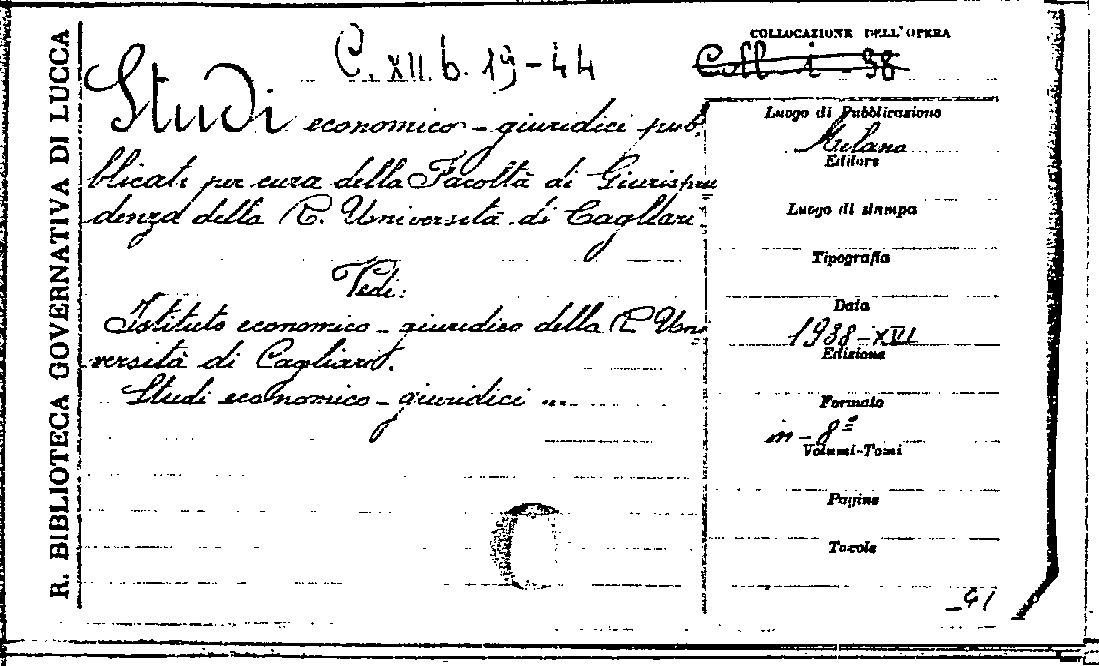 R. BIBLIOTECA GOVERNATIVA DI LUCCA
C. XII. b. 19-44
COLLOCAZIONE DELL'OPERA
Coll. i - 38
Studi economico-giuridici pub-
blicati per cura della Facoltà di Giurispru
denza della R. Università di Cagliari.
Vedi:
Istituto economico-giuridico della R. Uni
versità di Cagliari.
Studi economico-giuridici ...
Luogo di Pubblicazione
Milano
Editore
Luogo di stampa
Tipografia
Data
1938-XVI
Edizione
Formato
in-8º
Volumi-Tomi
Pagine
Tavole